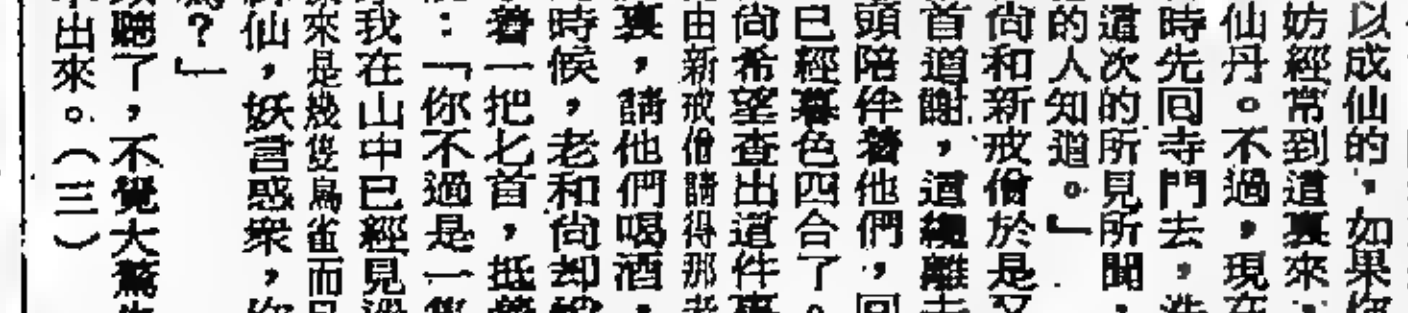 以成仙的，如果您
妨經常到這裏來，
仙丹。不過，現在
時先回寺門去，
這次的所見所聞，
的人知道。」
尚和新戒僧於是又
首道謝，這纔離去
頭陪伴着他們，回
已經暮色四合了。
尚希望查出這件事
由新戒僧請得那老
裏，請他們喝酒，
時候，老和尚却
着一把匕首，抵着
：「你不過是一隻
我在山中已經見過
來是幾隻鳥雀而已
仙，妖言惑衆，你
？」
聽了，不覺大驚失
出來。（三）